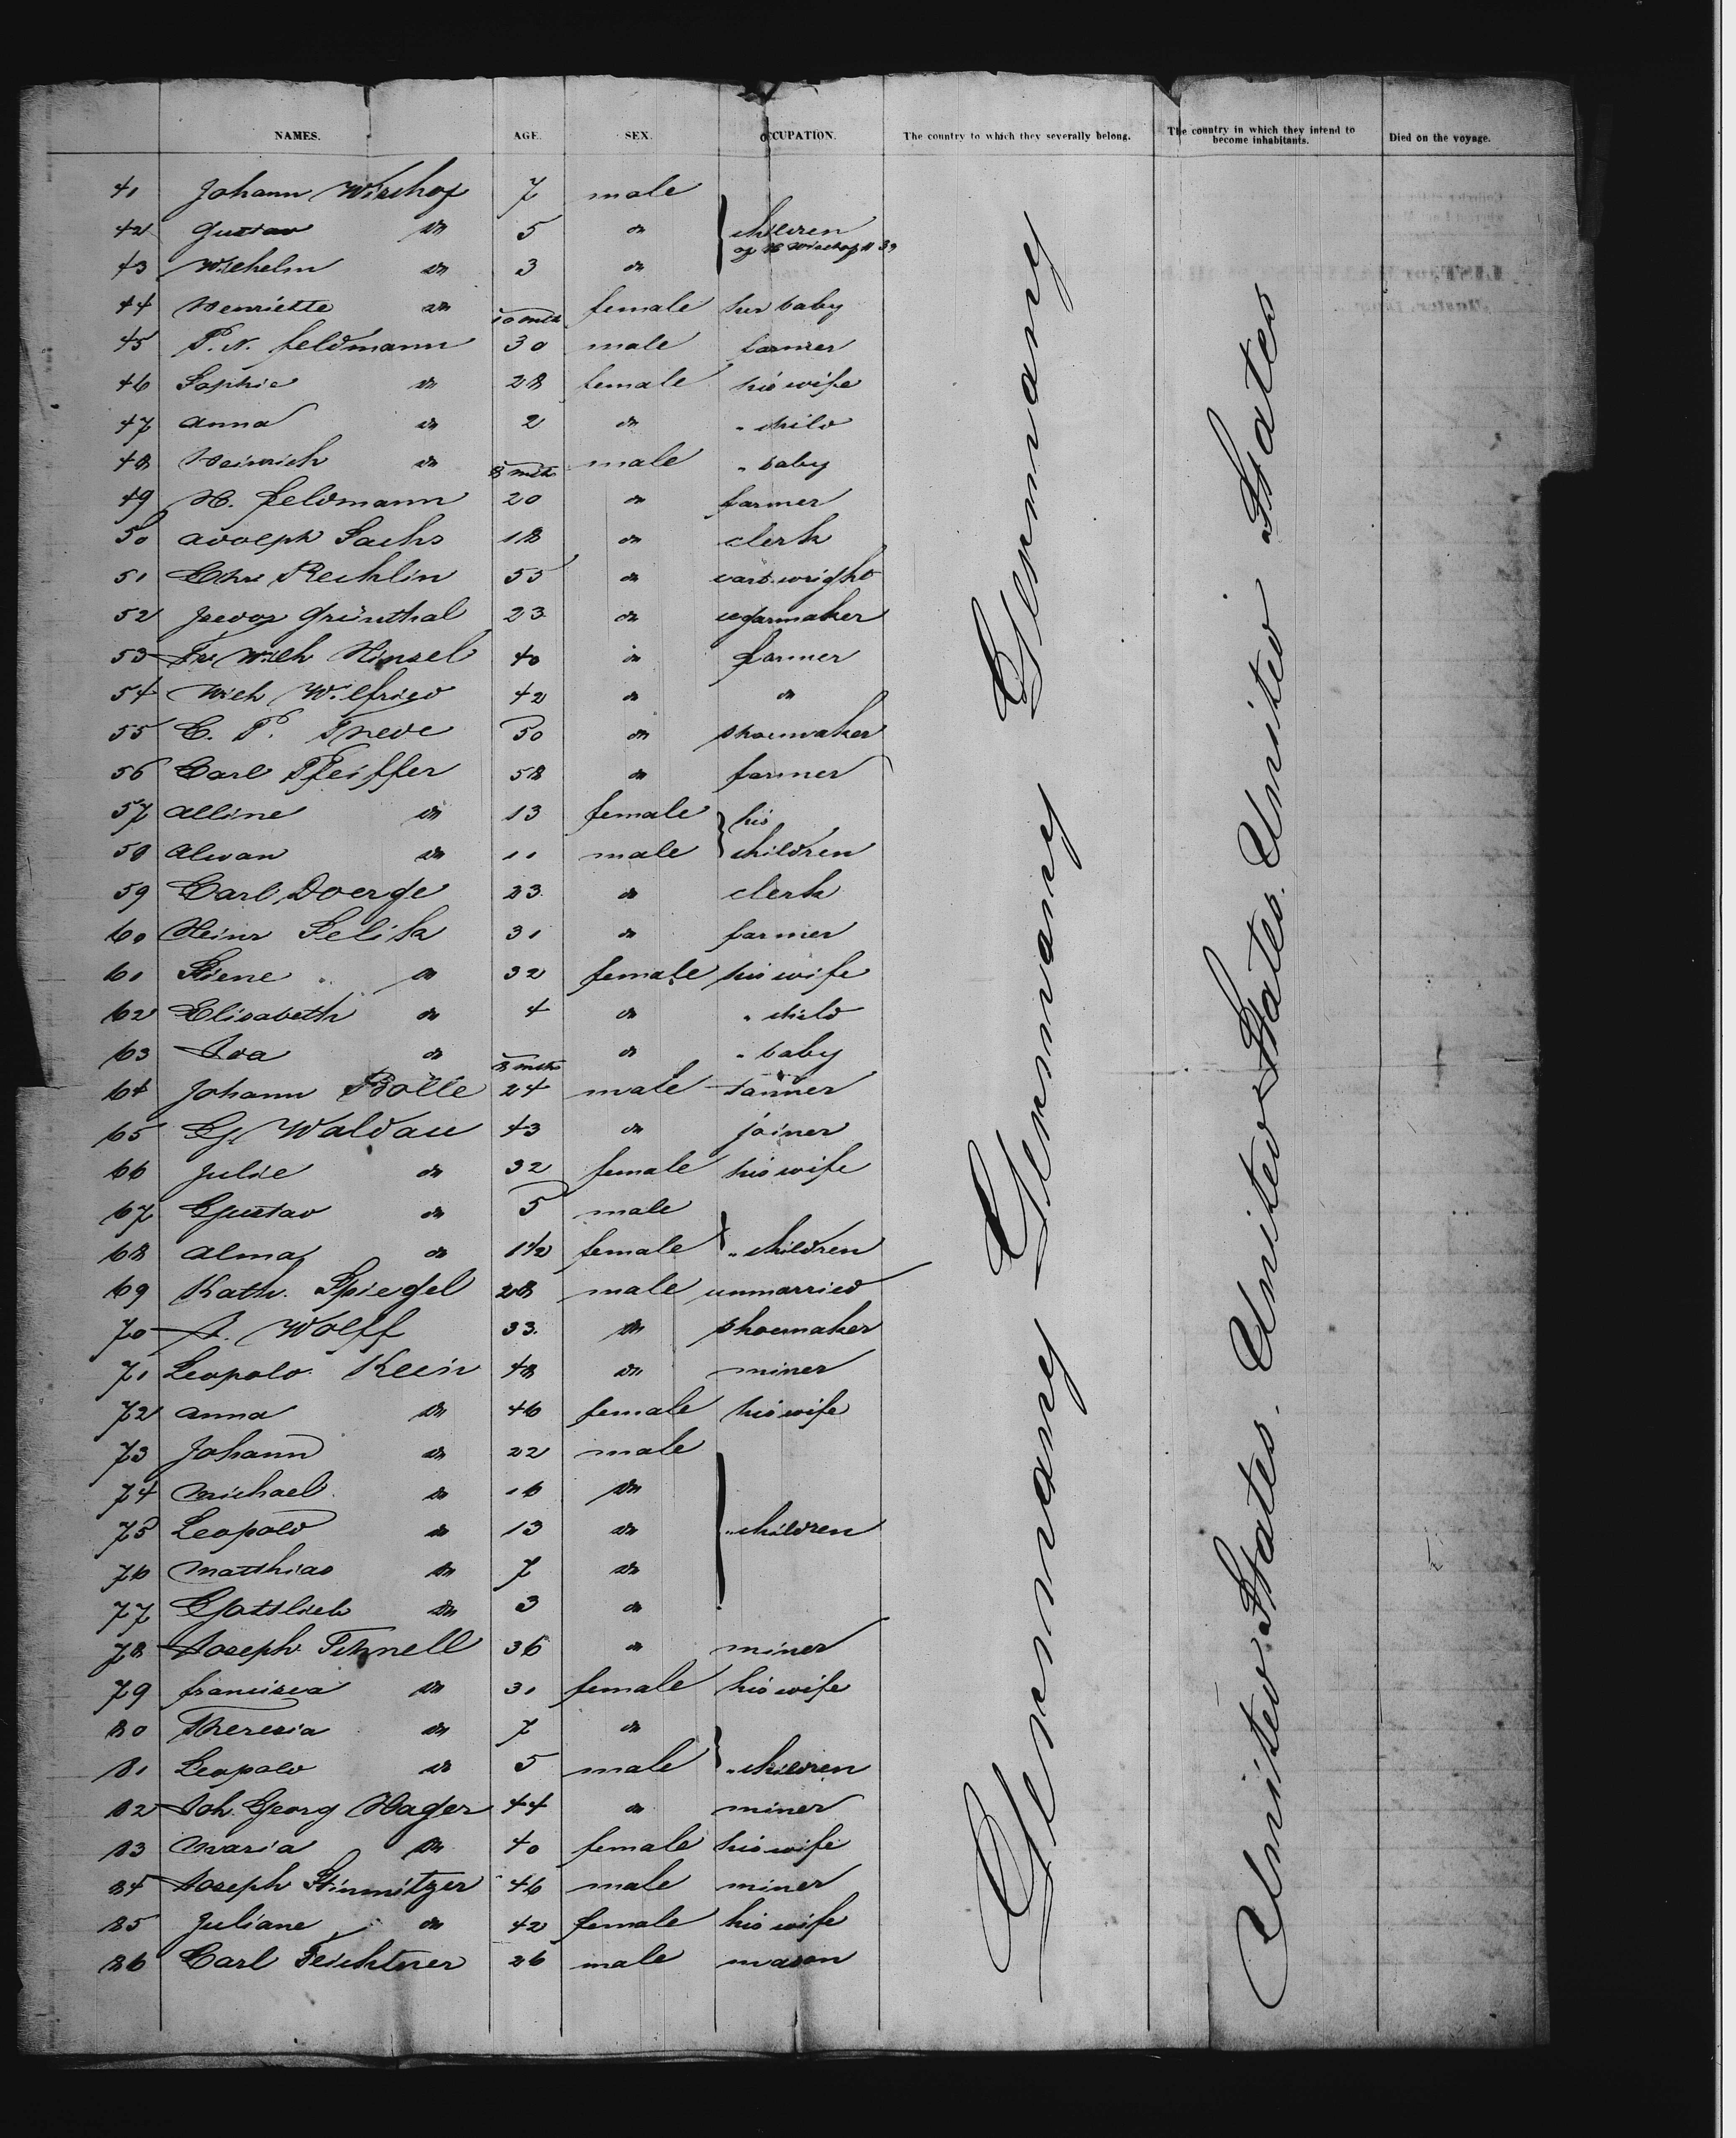 NAMES. AGE. SEX. OCCUPATION. The country to which they severally belong. The country in which they intend to become inhabitants. Died on the voyage.
41 Johann Wischof 7 male
42 Gustav do 5 do children
of 39
43 Wilhelm do 3 do
44 Henriette do 10 mth female her baby
45 P. N. Feldmann 30 male farmer
46 Sophie do 28 female his wife
47 Anna do 2 do " child
48 Heinrich do 8 mth male " baby
49 H. Feldmann 20 do farmer
50 Adolph Sachs 18 do clerk
51 Chr. Rechlin 55 do cartwright
52 Grünthal 23 do cigarmaker
53 Fr. Wilh Hinzel 40 do farmer
54 Wilh Wilfried 42 do do
55 C. P. Trede 50 do shoemaker
56 Carl Pfeiffer 58 do farmer
57 Alline do 13 female his
58 Alwan do 11 male children
59 Carl Doerge 23 do clerk
60 Heinr 31 do farmer
61 Stiene do 32 female his wife
62 Elisabeth do 4 do " child
63 Ida do 8 mth do " baby
64 Johann Bölle 24 male tanner
65 G. Waldau 43 do joiner
66 Julie do 32 female his wife
67 Gustav do 5 male
68 Alma do 1 1/2 female " children
69 Kath. Spiegel 28 male unmarried
70 A. Wolff 33 do shoemaker
71 Leopold Klein 48 do miner
72 Anna do 46 female his wife
73 Johann do 22 male
74 Michael do 16 do
75 Leopold do 13 do " children
76 Matthias do 7 do
77 Gottlieb do 3 do
78 Joseph Schnell 36 do miner
79 Francisca do 31 female his wife
80 Theresia do 7 do
81 Leopold do 5 male " children
82 Joh. Georg Hager 44 do miner
83 Maria do 40 female his wife
84 Joseph Stinmitzer 46 male miner
85 Juliane do 42 female his wife
86 Carl Feichtner 26 male mason
Germany Germany Germany Germany
United States. United States. United States